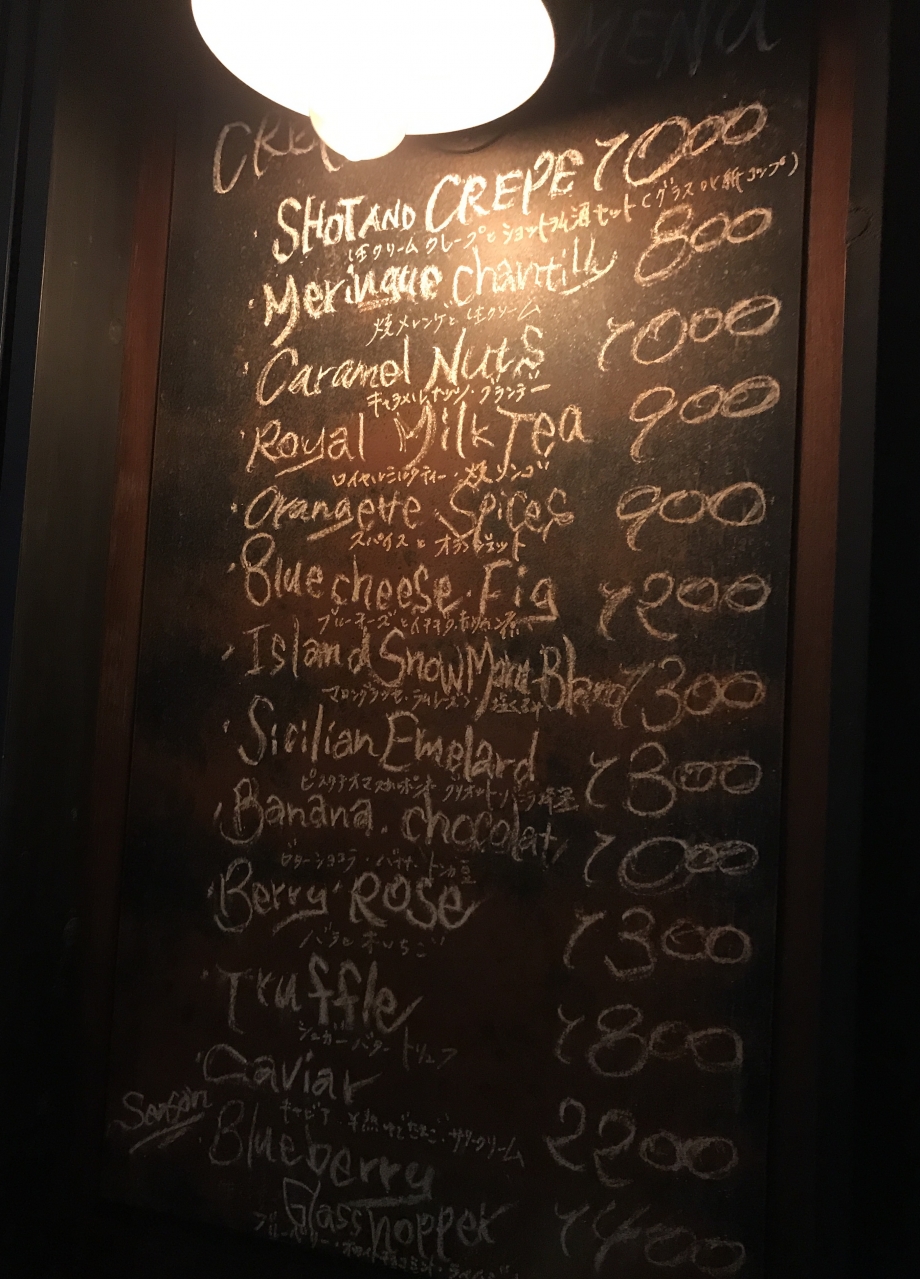 MENU
CRE
・SHOT AND CREPE 1000
生クリームクレープとショットラム酒セット(グラスor紙コップ)
・Meringue chantilly 800
焼メレンゲと生クリーム
・Caramel Nuts 1000
キャラメルナッツ・ブランデー
・Royal Milk Tea 900
ロイヤルミルクティー・焼リンゴ
・Orangette Spices 900
スパイスとオランジェット
・Blue cheese・Fig 1200
ブルーチーズとイチヂク赤ワイン煮
・Island Snow Mont-Blanc 1300
マロングラッセ・ラムレーズン 塩くるみ
・Sicilian Emelard 1300
ピスタチオマスカルポーネ グリオット・バニラ蜂蜜
・Banana. chocolat 1000
ビターショコラ・バナナ・トンカ豆
・Berry Rose 1300
バラと木いちご
・Truffle 1800
シュガーバター トリュフ
・Caviar 2200
キャビア・半熟ゆでたまご・サワークリーム
Season
・Blueberry
Glasshopper 1400
ブルーベリー・ホワイトチョコミント・ライム